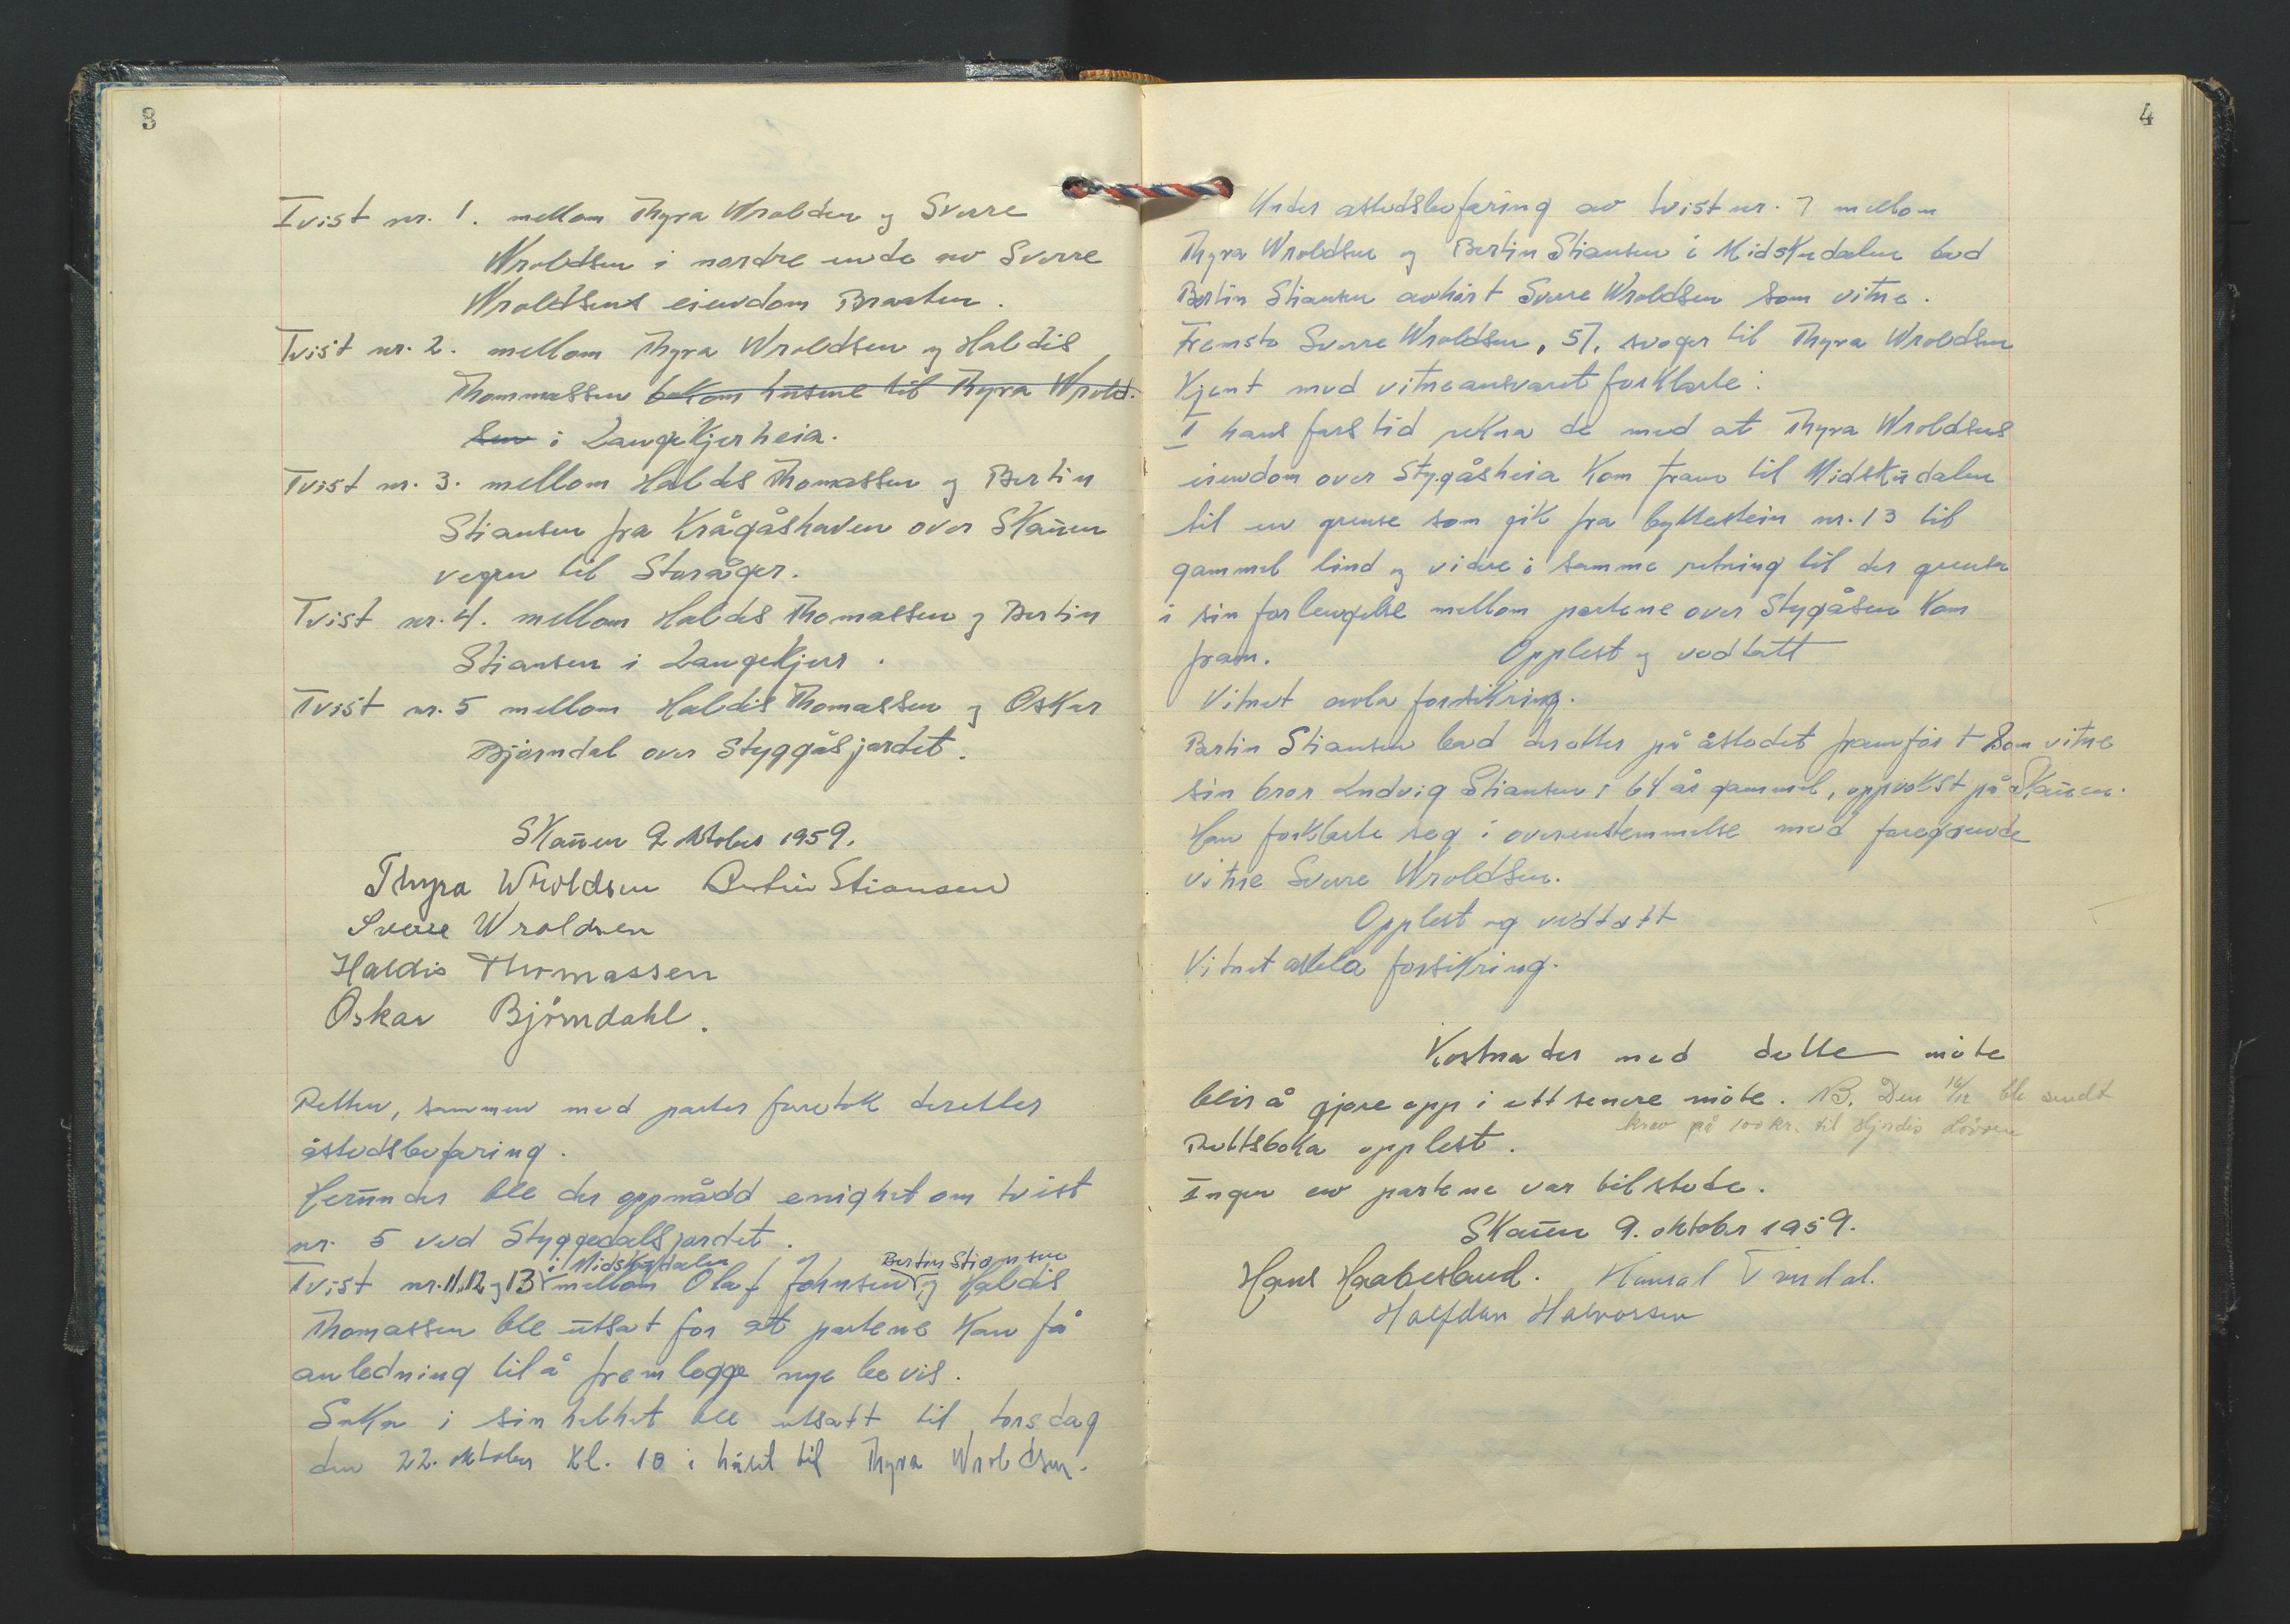 3
Tvist nr. 1. mellom Thyra Wroldsen og Sverre
Wroldsen i nordre ende av Sverre
Wroldsens eiendom Braaten.
Tvist nr. 2. mellom Thyra Wroldsen og Haldis
Thommassen bakom husene til Thyra Wrold-
sen i Langekjerheia.
Tvist nr. 3. mellom Haldis Thomassen og Bertin
Stiansen fra Krågåshaven over Skauen
vegen til Storåger.
Tvist nr. 4. mellom Haldis Thomassen og Bertin
Stiansen i Langekjerr.
Tvist nr. 5 mellom Haldis Thomassen og Oskar
Bjørndal over Styggåsjordet.
Skauen 9 oktober 1959.
Thyra Wroldsen Bertin Stiansen
Sverre Wroldsen
Haldis Thomassen
Oskar Bjørndahl.
Retten, sammen med parter foretok deretter
åstedsbefaring.
Herunder ble der oppnådd enighet om tvist
nr. 5 ved Styggedalsjordet.
i Midskudalen og Bertin Stiansen
Tvist nr. 11, 12 og 13 mellom Olaf Johnsen og Haldis
Thomassen ble utsat for at partene kan få
anledning til å fremlegge nye bevis.
Saka i sin helhet ble utsatt til torsdag
den 22. oktober kl. 10 i huset til Thyra Wroldsen.
4
Under åstedsbefaring av tvist nr. 7 mellom
Thyra Wroldsen og Bertin Stiansen i Midskudalen bad
Bertin Stiansen avhørt Sverre Wroldsen som vitne.
Fremsto Sverre Wroldsen, 57, svoger til Thyra Wroldsen
Kjent med vitneansvaret forklarte:
I hans fars tid rekna de med at Thyra Wroldsens
eiendom over Stygåsheia kom fram til Midskudalen
til en grense som gik fra byttestein nr. 13 til
gammel lind og videre i samme retning til der grensa
i sin forlengelse mellom partene over Stygåsen kom
fram. Opplest og vedtatt
Vitnet avla forsikring.
Bertin Stiansen bad deretter på åstedet framført som vitne
sin bror Ludvig Stiansen, 64 år gammel, oppvokst på Skauen.
Han forklarte seg i overenstemmelse med foregående
vitne Sverre Wroldsen.
Opplest og vedtatt
Vitnet avla forsikring.
Kostnader med dette møte
blir å gjøre opp i ett senere møte. NB. Den 16/12 ble sendt
krav på 100 kr. til Hjørdis
Rettsboka opplest.
Ingen av partene var tilstede.
Skauen 9. oktober 1959.
Hans Haabesland.
Halfdan Halvorsen